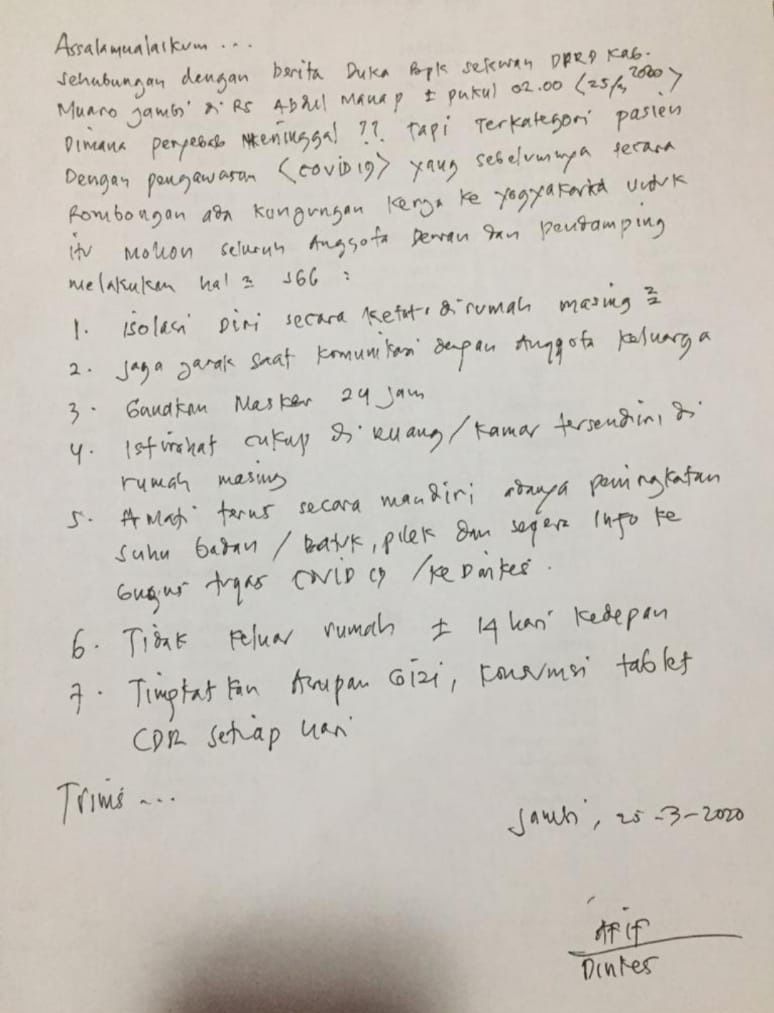 Assalamualaikum ...
Sehubungan dengan berita Duka Bpk sekwan DPRD Kab.
Muaro Jambi di RS Abdul Manap ± pukul 02.00 (25/3 2020)
Dimana penyebab meninggal ?? Tapi Terkategori pasien
Dengan pengawasan (covid 19) yang sebelumnya secara
Rombongan ada kungungan kerja ke yogyakarta untuk
itu Mohon seluruh Anggota Dewan dan pendamping
melakukan hal 2 sbb :
1. isolasi Diri secara ketat di rumah masing 2
2. Jaga jarak saat komunikasi dengan Anggota keluarga
3. Gunakan Masker 24 Jam
4. Istirahat cukup di ruang/kamar tersendiri, di
rumah masing
5. Amati terus secara mandiri adanya peningkatan
suhu badan / Batuk, pilek dan segera Info ke
Gugus tugas COVID 19 /ke Dinkes.
6. Tidak keluar rumah ± 14 hari kedepan
7. Tingkatkan Asupan Gizi, konsumsi tablet
CDR setiap hari
Trims ...
Jambi, 25-3-2020
Afif
Dinkes